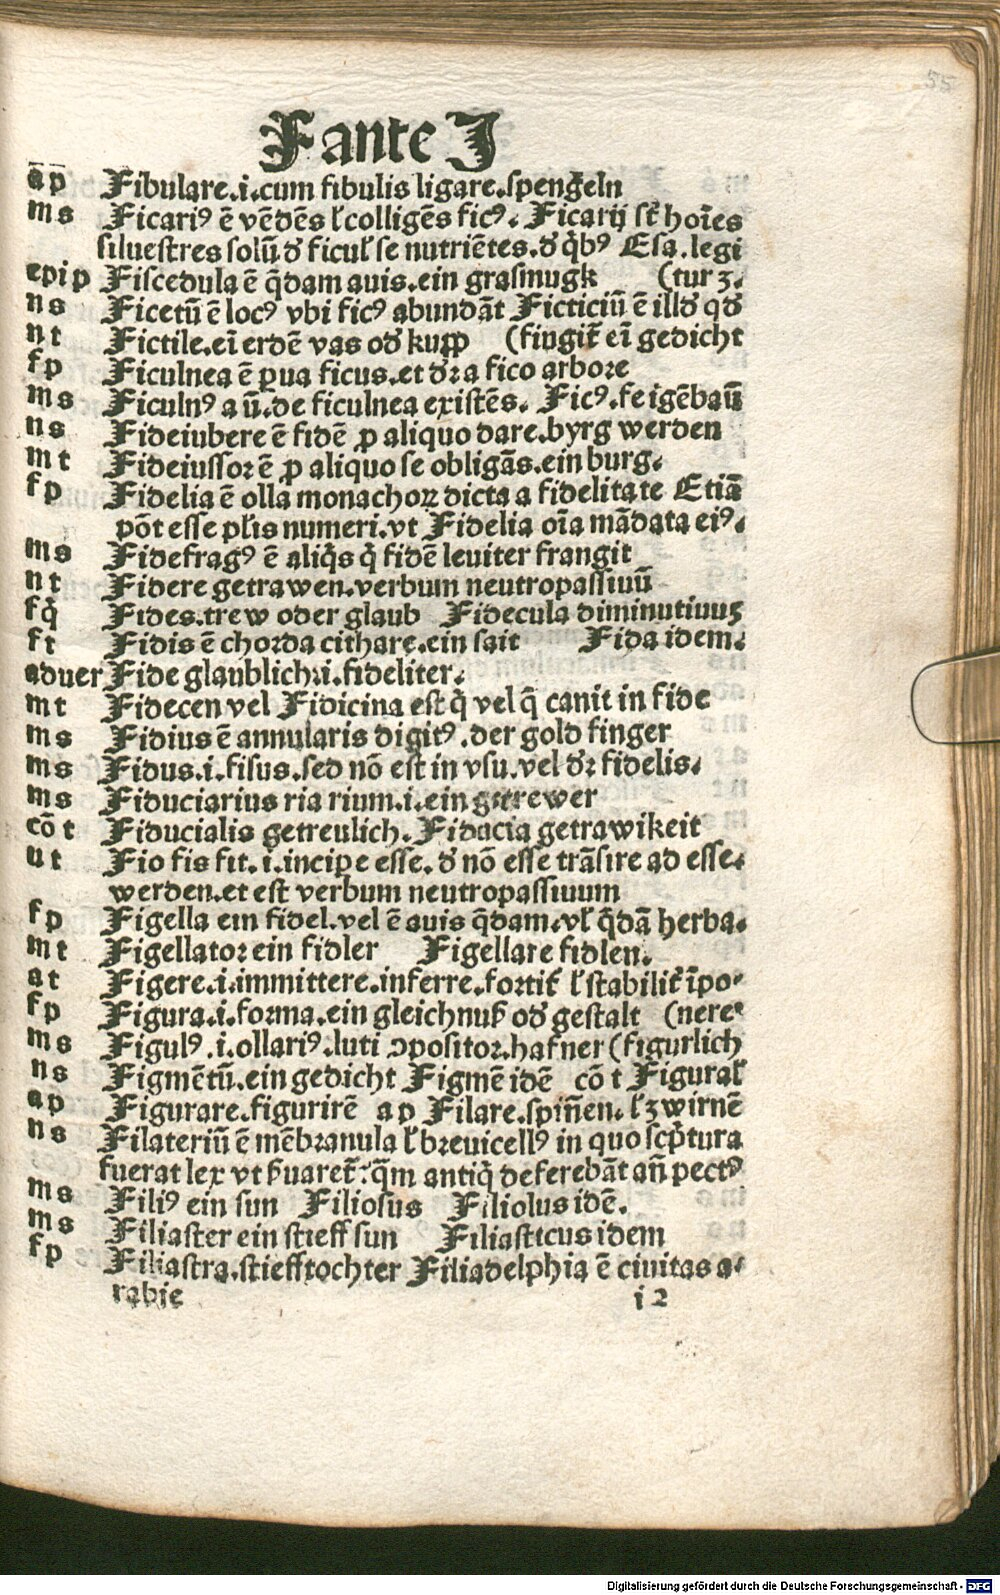 55
Fante J
āp̄ Fibulare.i.cum fibulis ligare.spengeln
ms Ficariꝰ ē vēdēs ł colligēs ficꝰ. Ficarij st̄ hoīes
siluestres solū ꝺ ficuł se nutriētes.ꝺ q̄bꝰ Esa.legi
epi p Fiscedula ē q̄dam auis.ein grasmugk (tur ʒ.
ns Ficetū ē locꝰ vbi ficꝰ abundāt Ficticiū ē illꝺ qꝺ
nt Fictile.eī erdē vas oꝺ kupp (fingit̄ eī gedicht
fp Ficulnea ē ꝑua ficus.et dꝛ a fico arbore
ms Ficulnꝰ a ū.de ficulnea existēs. Ficꝰ.feigēbaū
ns Fideiubere ē fidē ꝓ aliquo dare.byrg werden
mt Fideiussor ē ꝓ aliquo se obligās.ein burg.
fp Fidelia ē olla monachoꝝ dicta a fidelitate Etiā
pōt esse pl̄is numeri.vt Fidelia oīa mādata eiꝰ.
ms Fidefragꝰ ē aliq̄s q̄ fidē leuiter frangit
nt Fidere getrawen.verbum neutropassiuū
fq̄ Fides.trew oder glaub Fidecula diminutiuuʒ
ft Fidis ē chorda cithare.ein sait Fida idem.
aduer Fide glaublich.i.fideliter.
mt Fidecen vel Fidicina est q̄ vel q̄ canit in fide
ms Fidius ē annularis digitꝰ.der gold finger
ms Fidus.i.fisus.sed nō est in vsu.vel dꝛ fidelis.
ms Fiduciarius ria rium.i.ein getrewer
cō t Fiducialis getreulich. Fiducia getrawikeit
ut Fio fis fit.i.incipe esse.ꝺ nō esse trāsire ad esse.
werden.et est verbum neutropassiuum
fp Figella ein fidel.vel ē auis q̄dam.vł q̄dā herba.
mt Figellator ein fidler Figellare fidlen.
at Figere.i.immittere.inferre.fortit̄ ł stabilit̄ īpo-
fp Figura.i.forma.ein gleichnuß oꝺ gestalt (nere
ms Figulꝰ.i.ollariꝰ.luti ꝯpositor.hafner (figurlich
ns Figmētū.ein gedicht Figmē idē cō t Figurał
ap Figurare.figurirē ap Filare.spiñen.ł zwirnē
ns Filateriū ē mēbranula ł breuicellꝰ in quo scp̄tura
fuerat lex vt ẜuaret̄.q̄m antiq̄ deferebāt añ pectꝰ
ms Filiꝰ ein sun Filiosus Filiolus idē.
ms Filiaster ein stieff sun Filiasticus idem
fp Filiastra.stiefftochter Filiadelphia ē ciuitas a-
rabie i 2
Digitalisierung gefördert durch die Deutsche Forschungsgemeinschaft - DFG